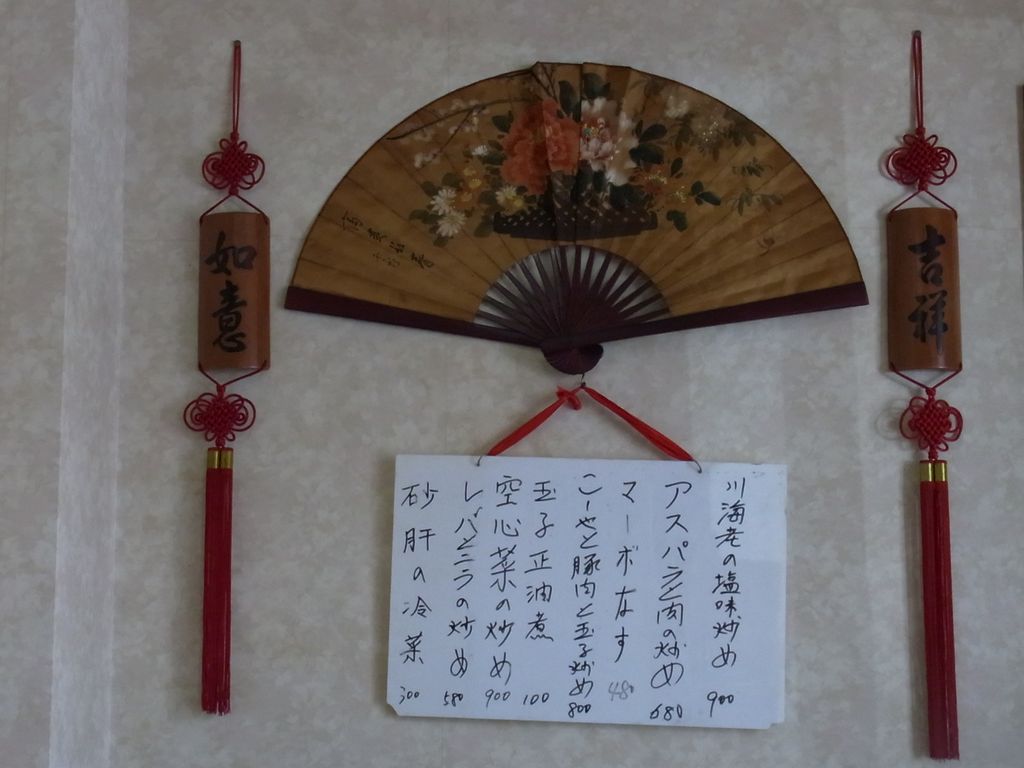 吉祥
如意
川海老の塩味炒め 900
アスパラと肉の炒め 680
マーボなす 480
こーやと豚肉と玉子炒め 800
玉子正油煮 100
空心菜の炒め 900
レバとニラの炒め 580
砂肝の冷菜 300